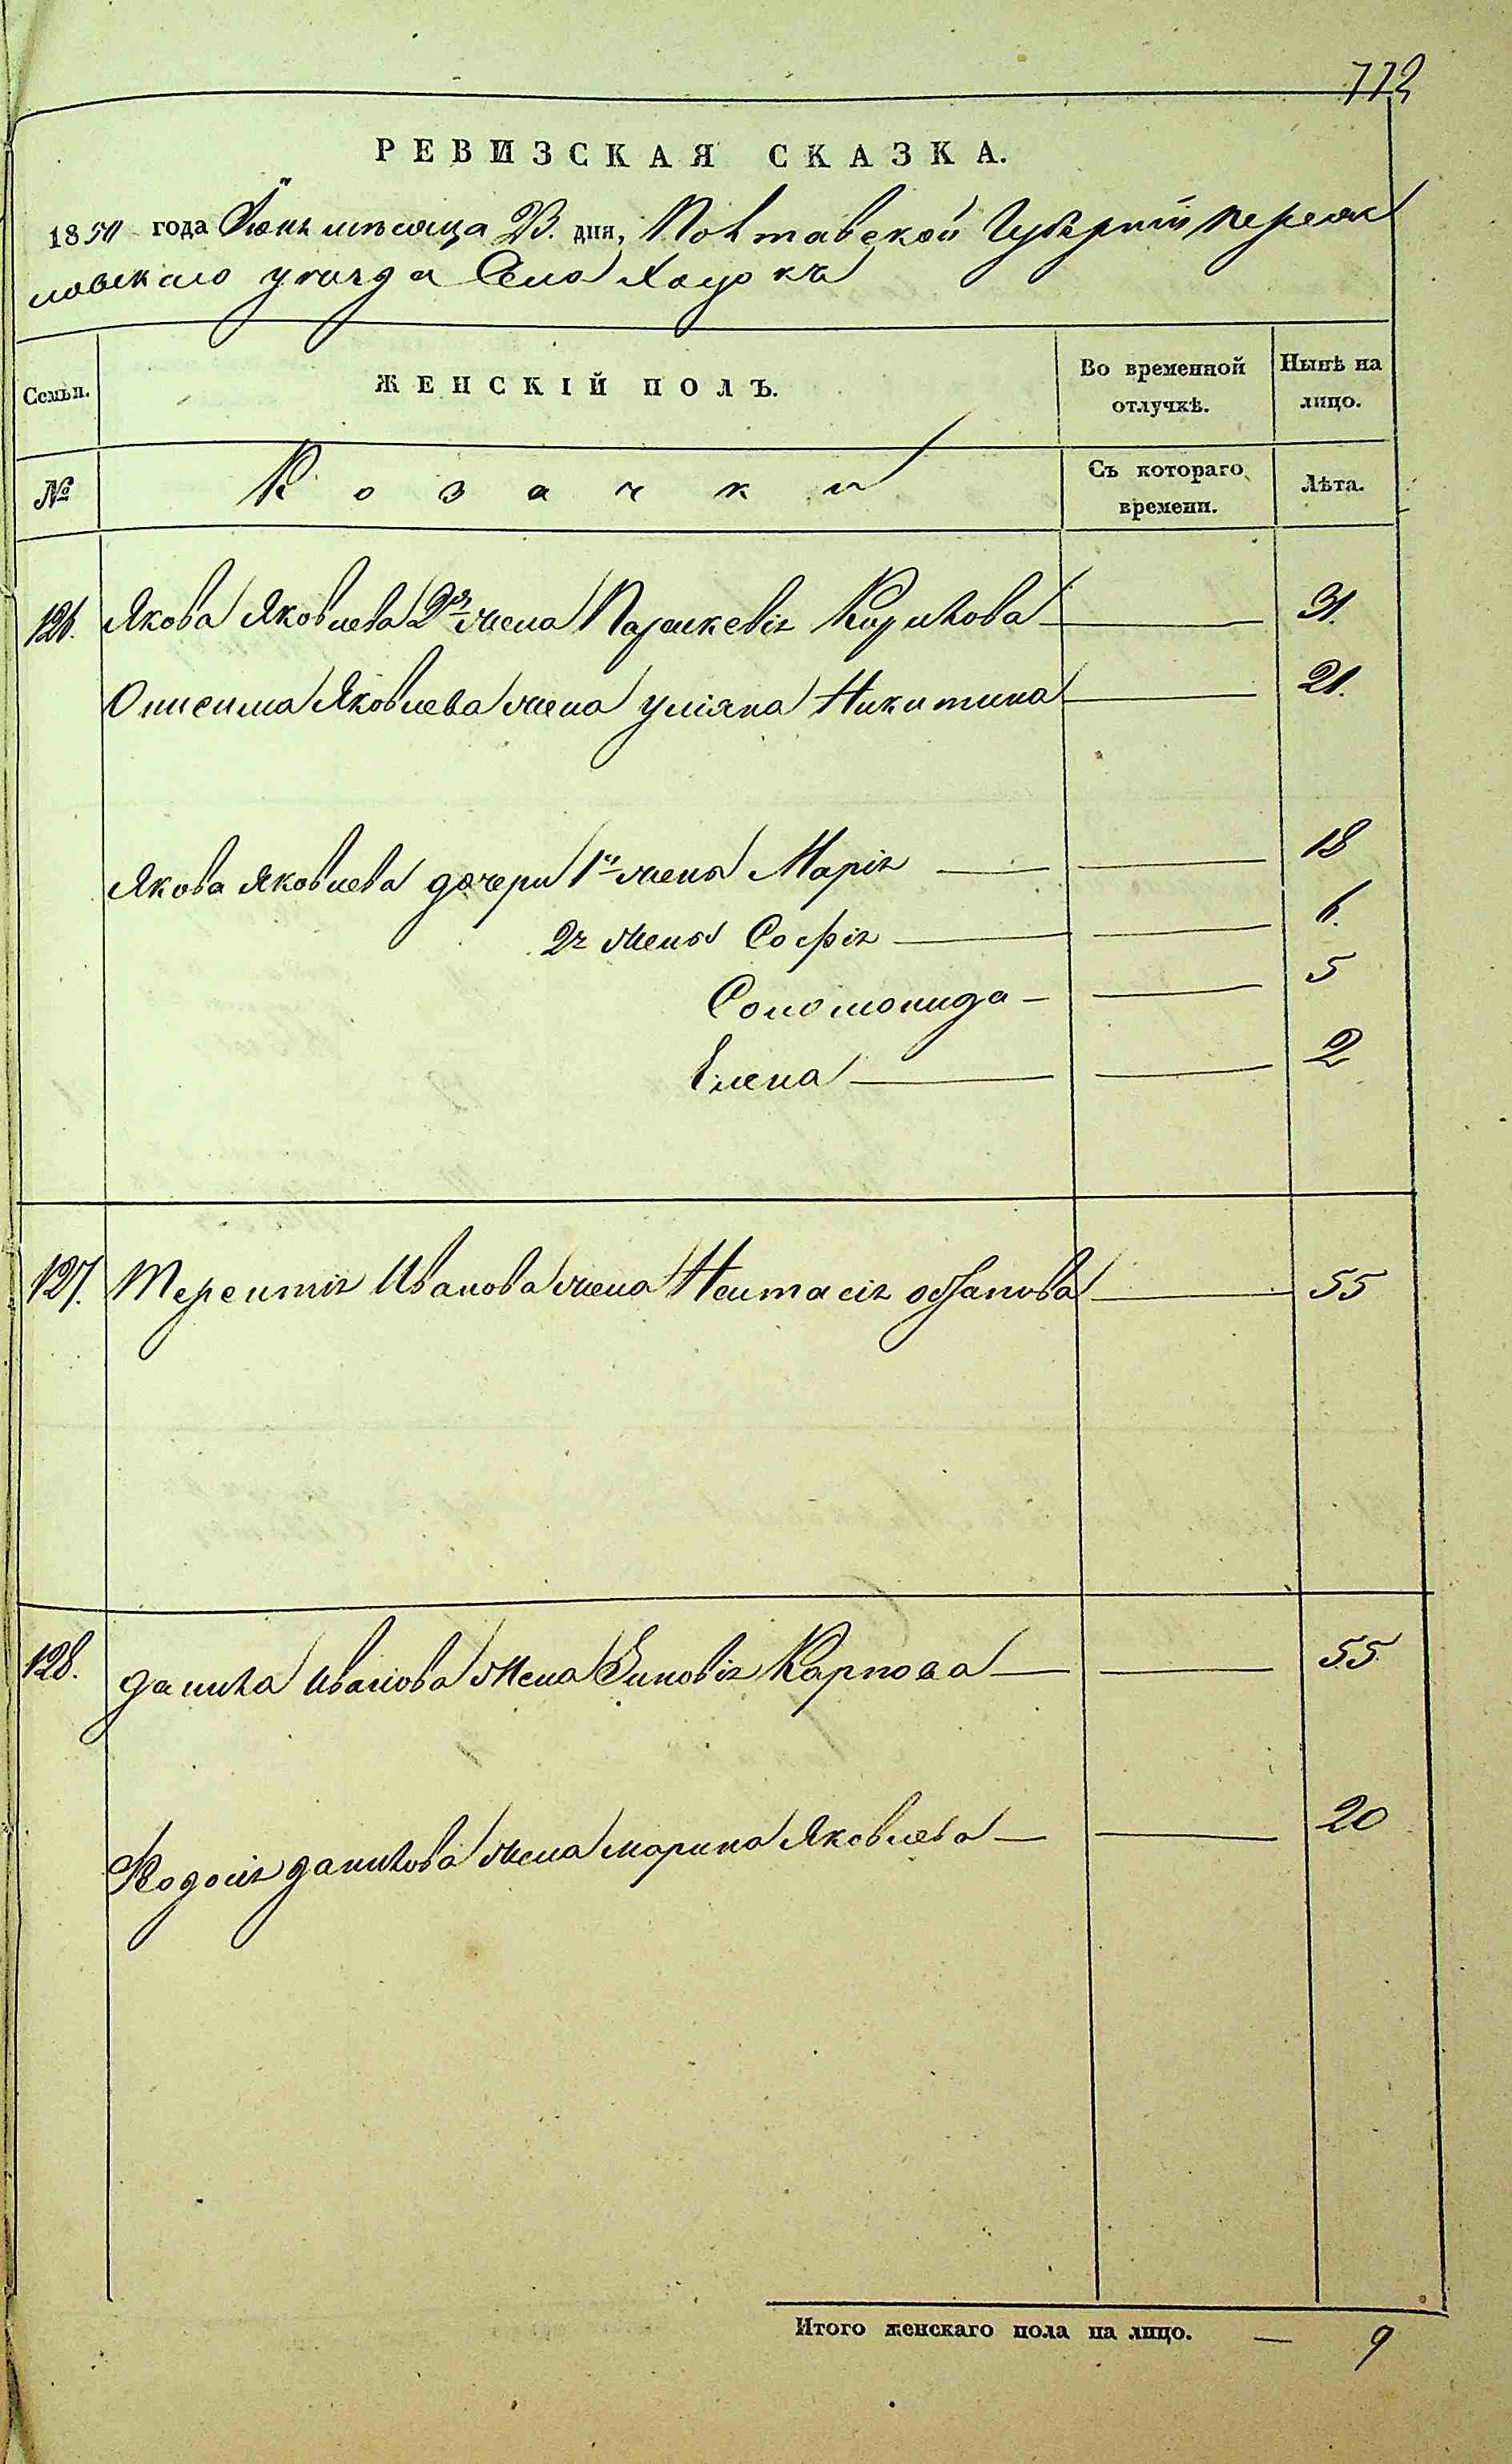 772
РЕВИЗСКАЯ СКАЗКА.
1850 года Іюня мѣсяца 23. дня, Полтавской Губерніи Переяс
ловскаго уезда Села Хоцокъ
Семьи. ЖЕНСКІЙ ПОЛЪ. Во временной отлучкѣ. Нынѣ на лицо.
№ Козачки Съ котораго времени. Лѣта.
126. Якова Яковлева 2я жена Параскевія Кирилова 31.
Онисима Яковлева жена Уліяна Никитина 21.
Якова Яковлева дочери 1й жены Марія 18
2й жены Софія 6.
Соломонида 5
Елена 2
127. Терентія Иванова жена Настасія 55
128. Данила Иванова жена Зиновія Карпова 55
Ѳодосія Данилова жена Марина Яковлева 20
Итого женскаго пола на лицо. 9